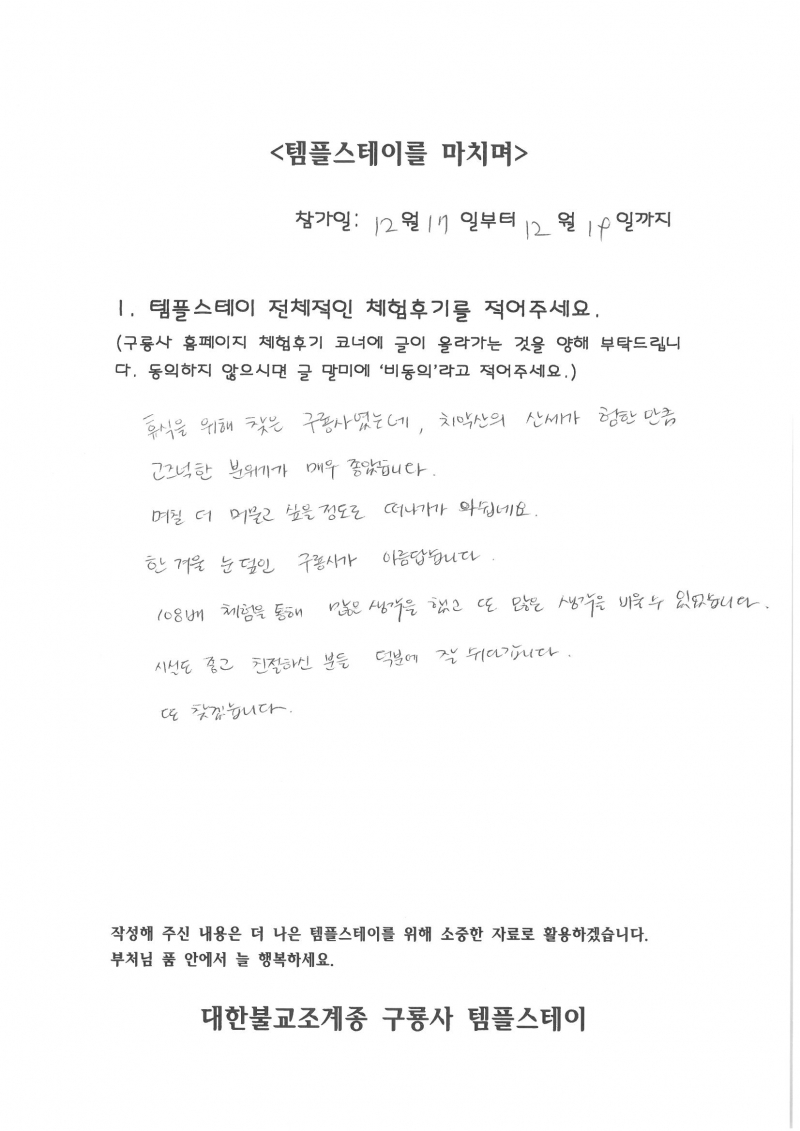 <템플스테이를 마치며>
참가일: 12월 17일부터 12월 19일까지
1. 템플스테이 전체적인 체험후기를 적어주세요.
(구룡사 홈페이지 체험후기 코너에 글이 올라가는 것을 양해 부탁드립니
다. 동의하지 않으시면 글 말미에 '비동의'라고 적어주세요.)
휴식을 위해 찾은 구룡사였는데, 치악산의 산세가 험한 만큼
고즈넉한 분위기가 매우 좋았습니다.
며칠 더 머물고 싶을 정도로 떠나가가 아쉽네요.
한 겨울 눈 덮인 구룡사가 아름답습니다.
108배 체험을 통해 많은 생각을 했고 또 많은 생각을 비울 수 있었습니다.
시설도 좋고 친절하신 분들 덕분에 잘 쉬다갑니다.
또 찾겠습니다.
작성해 주신 내용은 더 나은 템플스테이를 위해 소중한 자료로 활용하겠습니다.
부처님 품 안에서 늘 행복하세요.
대한불교조계종 구룡사 템플스테이